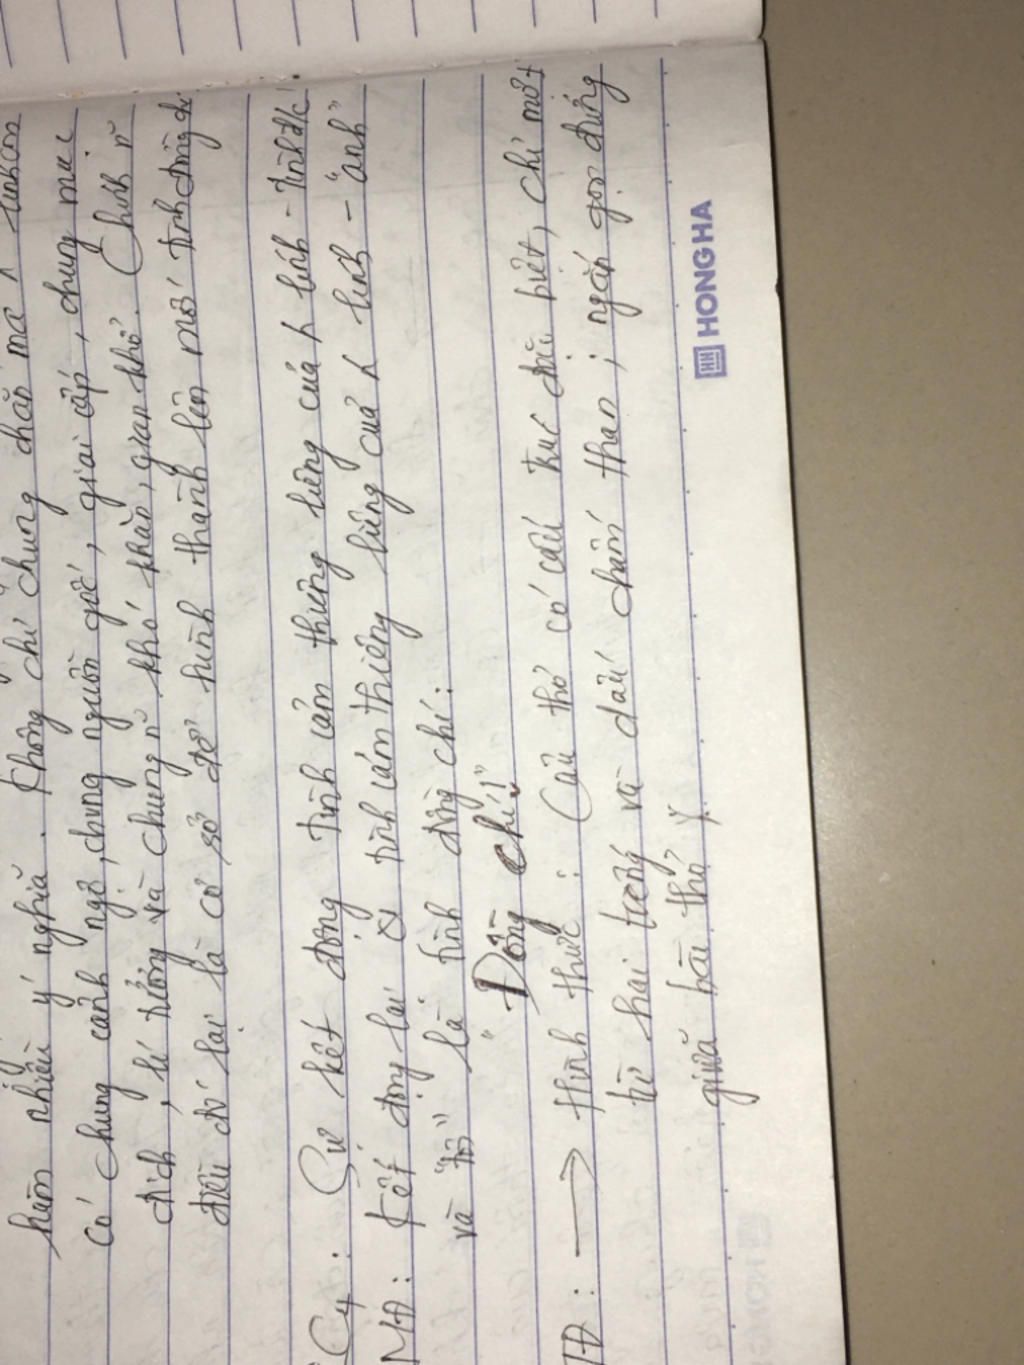 hàm nhiều ý nghĩa. Không chỉ chung chăn mà
có chung cảnh ngộ, chung nguồn gốc, giai cấp, chung mục
đích, lí tưởng và chung n~ khó khăn, gian khổ. Chính n~
điều đó lại là cơ sở để hình thành lên mối tình đồng chí
Sự kết đọng tình cảm thiêng liêng của lính - tình đ/c
MĐ: Kết đọng lại tình cảm thiêng liêng của lính - "anh"
và "tôi" là tình đồng chí:
"Đồng chí!"
TĐ: → Hình thức: Câu thơ có cấu trúc đặc biệt, chỉ một
từ hai tiếng và dấu chấm than; ngắn gọn đứng
giữa bài thơ
HH HONG HA